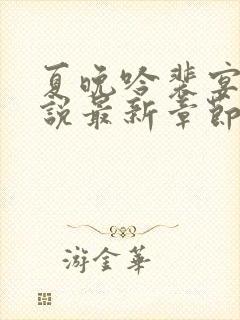 夏晚吟裴宴
说最新章節
游金華